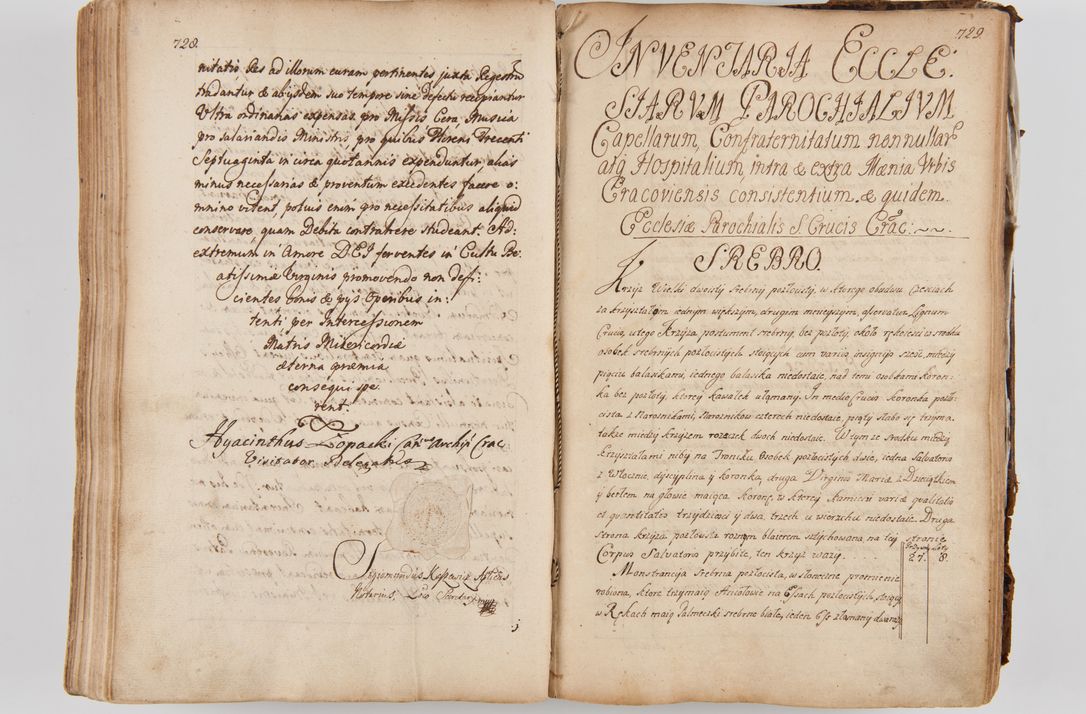 728.
nitatis Res ad illorum curam pertinentes juxta Regestru
tradantur & ab ijsdem suo tempore sine defectu recipiantur
Ultra ordinarias expensas pro Missis Cera Musica
pro salariandis Ministris, pro quibus Floreni Trecenti
Septuaginta in circa quotannis expenduntur, alias
minus necessarias & proventum excedentes facere o:
mnino vitent, potius enim pro necessitatibus aliquid
conservare quam Debita contrahere studeant. Ad:
extremum in Amore DEI ferventes in Cultu Be:
atissimæ Virginis promovendo non defi:
cientes bonis & pijs Operibus in:
tenti per Intercessionem
Matris Misericordiæ
æterna præmia
consequi spe
rent.
Hyacinthus Łopacki Can: Archip: Crac
Visitator Delegatus
Sigismundus Notarius
729.
INVENTARIA ECCLE:
SIARUM PAROCHIALIUM
Capellarum, Confraternitatum nonnullar
atq Hospitalium intra & extra Mænia Urbis
Cracoviensis consistentium & quidem
Ecclesiæ Parochialis S. Crucis Crac:
SREBRO.
Krzyż Wielki dwoisty srebrny pozłocisty, w ktorego obudwu częściach
za krzyształem jednym większym, drugim mnieyszym, asservatur Lignum
Crucis, u tego Krzyża postument srebrny, bez pozłoty, około rękoieści w srodku
osobek srebrnych pozłocistych stoiących cum variis insignijs sześć, między
pięciu balaskami, iednego balaska niedostaie, nad temi osobkami Koron:
ka bez pozłoty, ktorey kawałek ułamany. In medio Crucis Koronka pozło:
cista z Narożnikami, Narożnikow czterech niedostaie, piąty słabo się trzyma.
także między krzyżem rożeczek dwoch niedostaie. W tym że srodku między
krzyształami niby na Troniku Osobek pozłocistych dwie, iedna Salvatoris
z Włocznią, dyscypliną y koronką, druga Virginis Mariæ z Dzieciątkiem
y berłem na głowie maiąca Koronę, w ktorey kamieni variæ qualitatis
et quantitatis trzydzieści y dwa, trzech u wierzchu niedostaie. Druga
strona krzyża pozłocista rożnym blaierem sztychowana, na tey stronie
Corpus Salvatoris przybite, ten krzyż waży . . . 27. 8.
Monstrancya Srebrna pozłocista, w słoneczne promienie
robiona, ktore trzymaią Aniołowie na Essach pozłocistych, stoiący
w Rękach maią Palmeczki srebrne białe, ieden